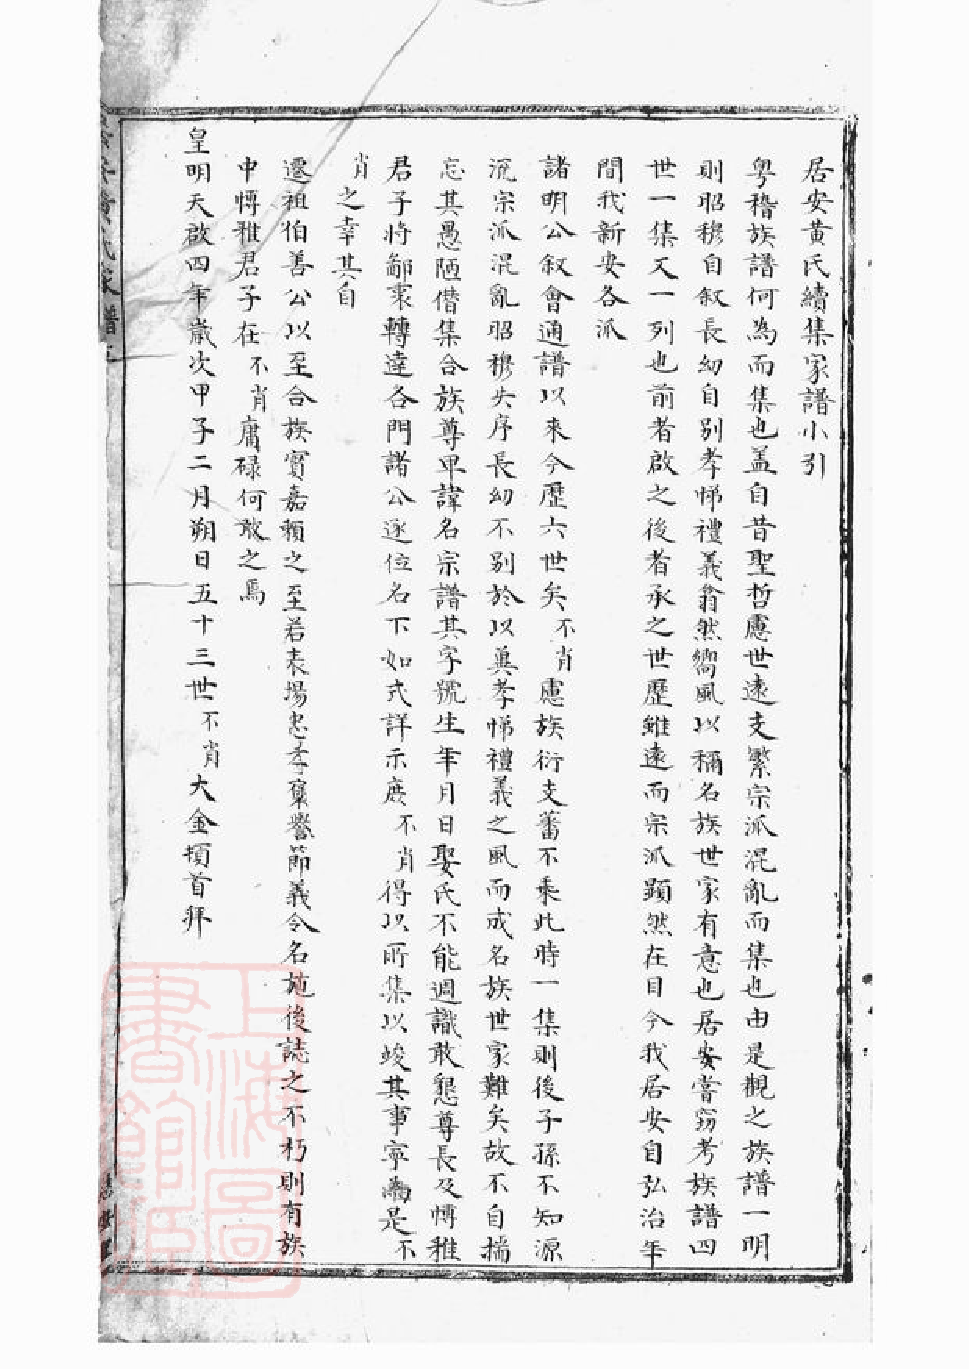 居安黄氏續集家譜小引
粤稽族譜何為而集也盖自昔聖哲慮世遠支繁宗派混亂而集也由是觀之族譜一明
則昭穆自叙長幼自别孝悌禮義翕然嚮風以稱名族世家有意也居安嘗竊考族譜四
世一集又一列也前者啟之後者承之世歷雖遠而宗派顯然在目今我居安自弘治年
間我新安各派
諸明公叙會通譜以來今歷六世矣不肖慮族衍支蕃不乘此時一集則後子孫不知源
流宗派混亂昭穆失序長幼不别於以冀孝悌禮義之風而成名族世家難矣故不自揣
忘其愚陋僭集合族尊卑諱名宗譜其字號生年月日娶氏不能週識敢懇尊長及博雅
君子將鄙衷轉達各門諸公逐位名下如式詳示庶不肖得以所集以竣其事寧是不
肖之幸其自
遷祖伯善公以至合族實嘉賴之至若表揚忠孝褒譽節義令名施後誌之不朽則有族
中博雅君子在不肖庸碌何敢之焉
皇明天啟四年歲次甲子二月朔日五十三世不肖大金頓首拜
氏家譜
上海圖書館藏